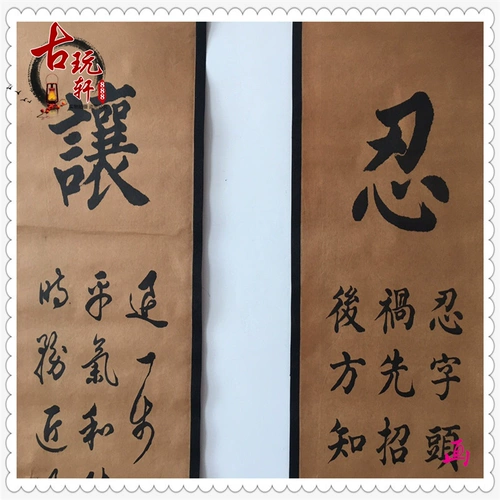 古玩轩
888
忍
忍字頭
禍先招
後方知
讓
退一步
平氣和
時勝近
画